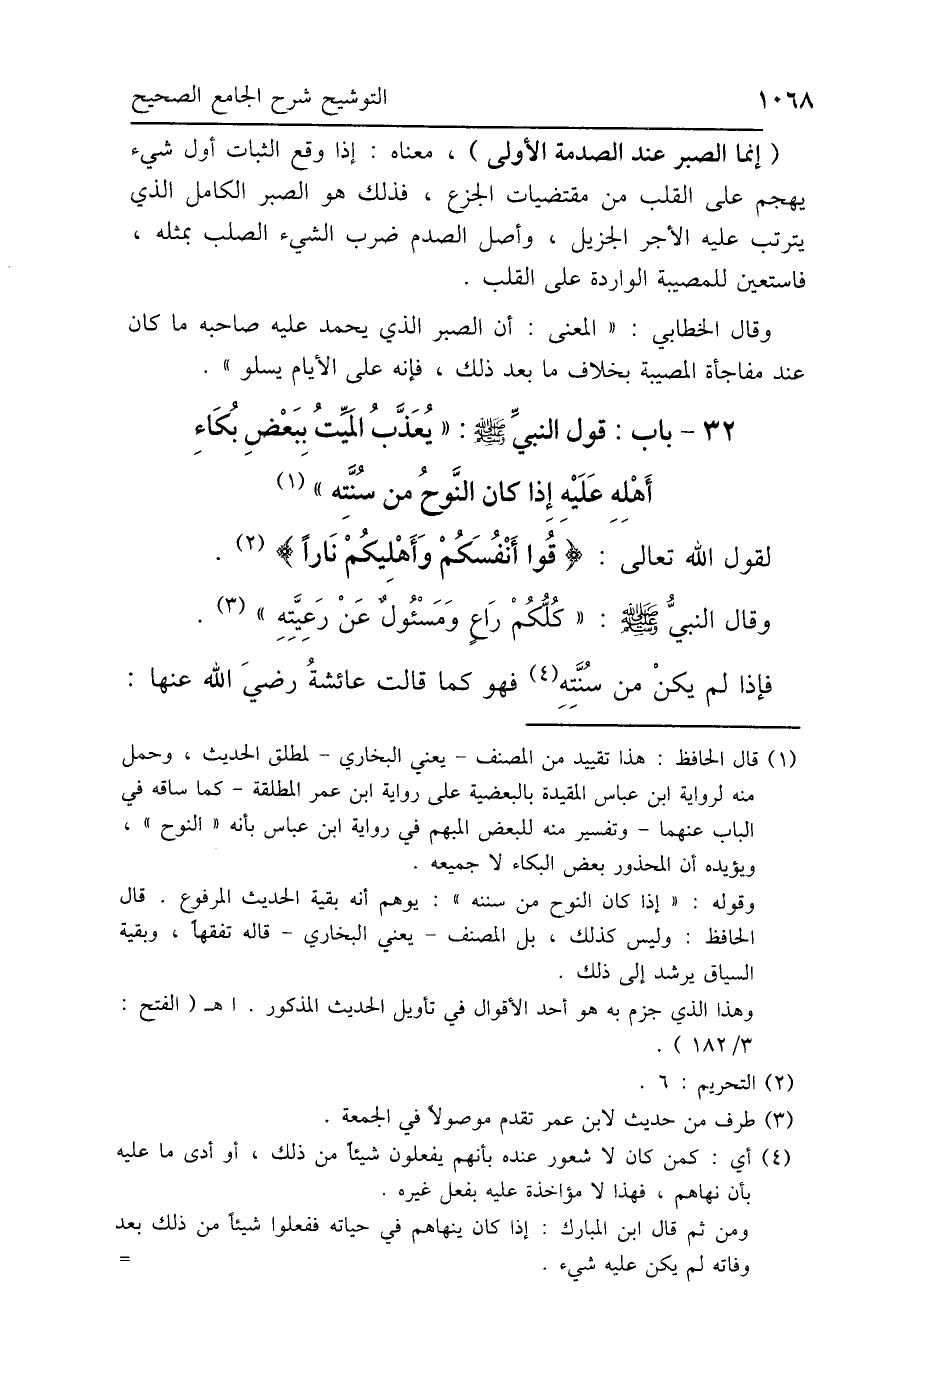 ١٠٦٨ التوشيح شرح الجامع الصحيح
( إنما الصبر عند الصدمة الأولى ) ، معناه : إذا وقع الثبات أول شيء
يهجم على القلب من مقتضيات الجزع ، فذلك هو الصبر الكامل الذي
يترتب عليه الأجر الجزيل ، وأصل الصدم ضرب الشيء الصلب بمثله ،
فاستعين للمصيبة الواردة على القلب .
وقال الخطابي : « المعنى : أن الصبر الذي يحمد عليه صاحبه ما كان
عند مفاجأة المصيبة بخلاف ما بعد ذلك ، فإنه على الأيام يسلو » .
٣٢ – باب : قول النبيِّ ﷺ : « يُعَذَّبُ المَيِّتُ بِبَعْضِ بُكَاءِ
أَهْلِهِ عَلَيْهِ إِذا كان النَّوحُ من سُنَّتِه » (١)
لقول الله تعالى : ﴿ قُوا أَنْفُسَكُمْ وَأَهْلِيكُمْ نَاراً ﴾ (٢) .
وقال النبيُّ ﷺ : « كُلُّكُمْ رَاعٍ وَمَسْئُولٌ عَنْ رَعِيَّتِهِ » (٣) .
فإذا لم يكنْ من سُنَّتِهِ(٤) فهو كما قالت عائشةُ رضيَ الله عنها :
(١) قال الحافظ : هذا تقييد من المصنف – يعني البخاري – لمطلق الحديث ، وحمل
منه لرواية ابن عباس المقيدة بالبعضية على رواية ابن عمر المطلقة – كما ساقه في
الباب عنهما – وتفسير منه للبعض المبهم في رواية ابن عباس بأنه « النوح » ،
ويؤيده أن المحذور بعض البكاء لا جميعه .
وقوله : « إذا كان النوح من سننه » : يوهم أنه بقية الحديث المرفوع . قال
الحافظ : وليس كذلك ، بل المصنف – يعني البخاري – قاله تفقهاً ، وبقية
السياق يرشد إلى ذلك .
وهذا الذي جزم به هو أحد الأقوال في تأويل الحديث المذكور . ا هـ ( الفتح :
٣/ ١٨٢ ) .
(٢) التحريم : ٦ .
(٣) طرف من حديث لابن عمر تقدم موصولاً في الجمعة .
(٤) أي : كمن كان لا شعور عنده بأنهم يفعلون شيئاً من ذلك ، أو أدى ما عليه
بأن نهاهم ، فهذا لا مؤاخذة عليه بفعل غيره .
ومن ثم قال ابن المبارك : إذا كان ينهاهم في حياته ففعلوا شيئاً من ذلك بعد
وفاته لم يكن عليه شيء . =